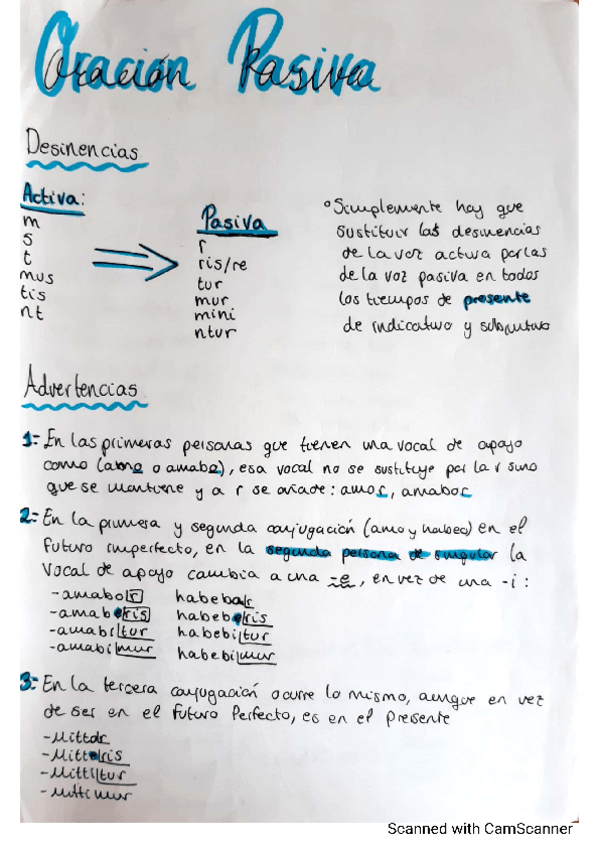 Oración Pasiva
Desinencias
Activa:
m
s
t
mus
tis
nt
Pasiva
r
ris/re
tur
mur
mini
ntur
°Simplemente hay que
sustituir las desinencias
de la voz activa por las
de la voz pasiva en todos
los tiempos de presente
de indicativo y subjuntivo
Advertencias
1= En las primeras personas que tienen una vocal de apoyo
como (amo o amabo), esa vocal no se sustituye por la r sino
que se mantiene y a r se añade: amor, amabor
2= En la primera y segunda conjugación (amo y habeo) en el
futuro imperfecto, en la segunda persona de singular la
vocal de apoyo cambia a una -e, en vez de una -i:
-amabor habebor
-amaberis habeberis
-amabitur habebitur
-amabimur habebimur
3= En la tercera conjugación ocurre lo mismo, aunque en vez
de ser en el Futuro Perfecto, es en el Presente
-Mittor
-Mitteris
-Mittitur
-Mittimur
Scanned with CamScanner